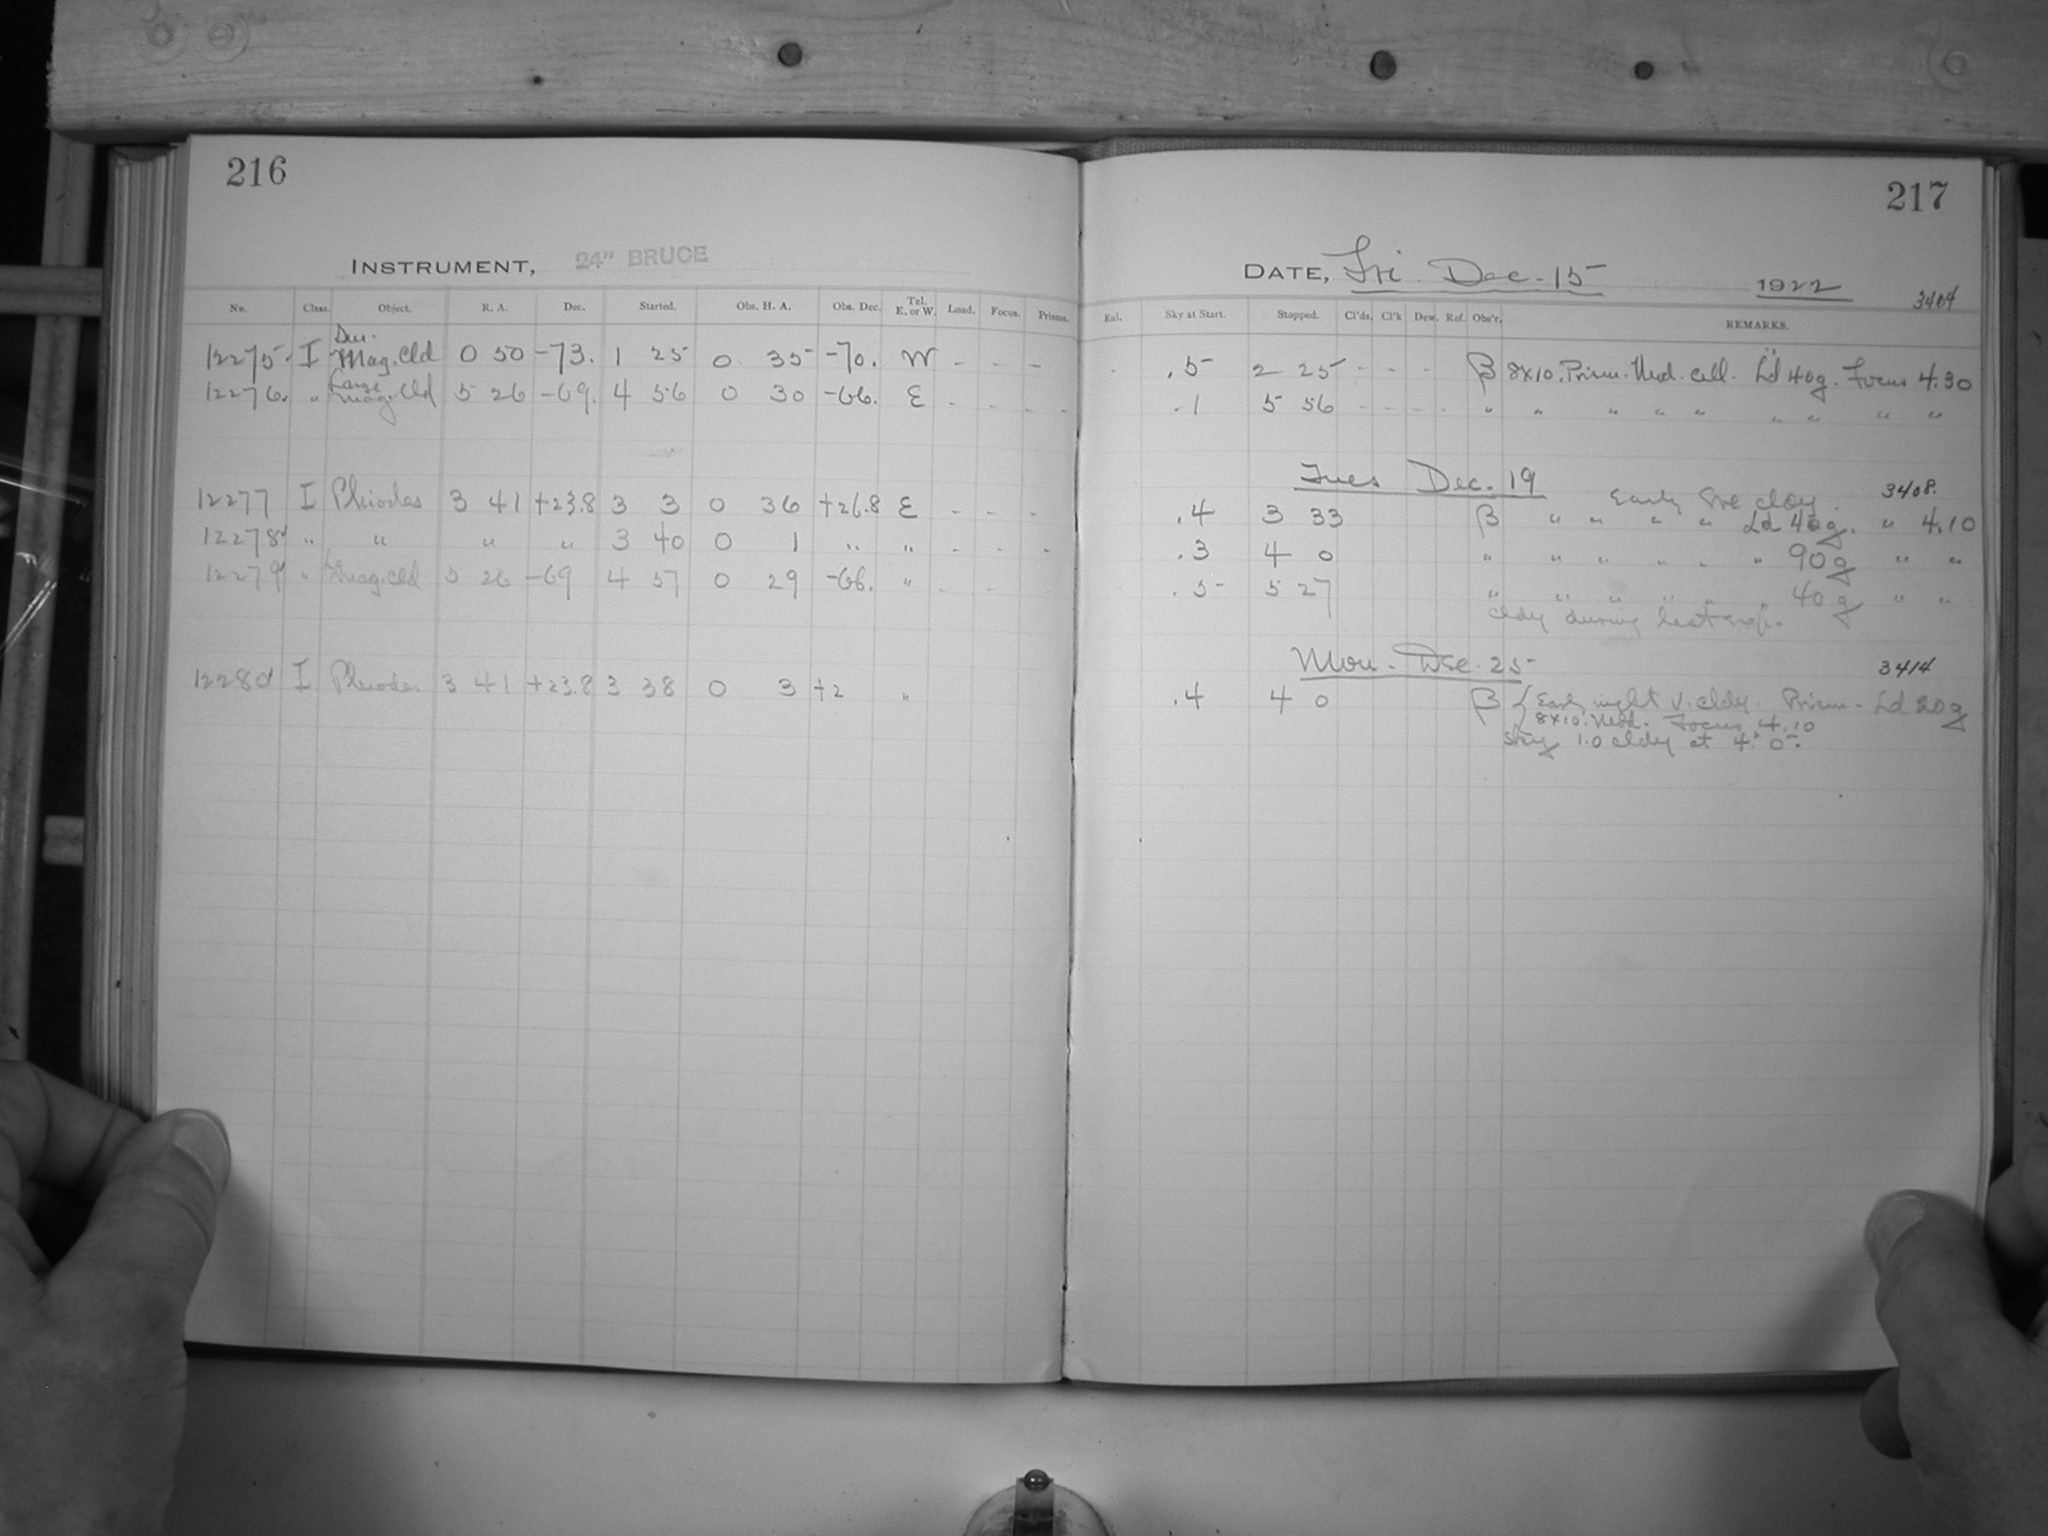 216
INSTRUMENT, 24" BRUCE
No. Class. Object. R. A. Dec. Started. Obs. H. A. Obs. Dec. Tel. E. or W. Load. Focus. Prisms.
12275 I Mag. Cld 0 50 -73. 1 25 0 35 -70. W - - -
12276 " Large Mag. Cld 5 26 -69. 4 56 0 30 -66. E - - - -
12277 I Pleiades 3 41 +23.8 3 3 0 36 +26.8 E - - -
12278 " " " " 3 40 0 1 " " - - -
12279 " Mag. Cld 5 26 -69 4 57 0 29 -66. " - -
12280 I Pleiades 3 41 +23.8 3 38 0 3 +2 "
217
DATE, Fri Dec. 15 1922
3404
Eal. Sky at Start. Stopped. Cl'ds. Cl'k Dew. Ref. Obs'r. REMARKS.
- .5 2 25 - - - β 8x10. Prism. Med. cell. Ld 40g. Focus 4.30
.1 5 56 - - - - " " " " " " " " "
Tues Dec. 19 Early Eve cldy. 3408.
.4 3 33 β " " " " Ld 40g. " 4.10
.3 4 0 " " " " " " 90g " "
.5 5 27 " " " " " 40g " "
cldy during last exp.
Mon. Dec. 25 3414
.4 4 0 β Early night v. cldy. Prism. Ld 20g
8x10. Med. Focus 4.10
Sky 1.0 cldy at 4 0